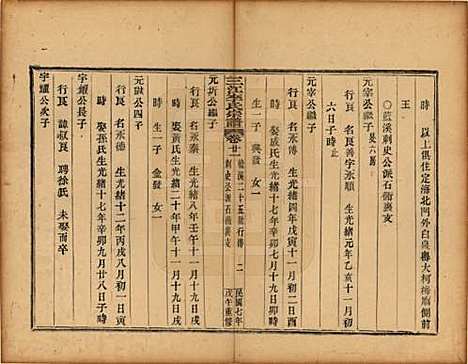 時 以上俱住定海北門外白泉鄉大柯梅廟側前
王
○蘇溪刺史公派石衕廣支
元宰公繼子
行良 名良善字永順 生光緒元年乙亥十一月初
六日子時止
元宰公繼子
行良 名永傳 生光緒四年戊寅十一月初二日酉
時 娶盛氏生光緒十七年辛卯七月十九日戌時
生一子 興發 女一
三江李氏宗譜 卷廿 二十五 行傳 二 刺史公派石衕廣支 民國七年 戊午重修
元圻公繼子
行良 名永泰 生光緒八年壬午十一月十九日戌
時 娶黃氏生光緒二十年甲午十一月十九日
時 生一子 金發 女一
元㷍公四子
行良 名永德 生光緒十二年丙戌八月初一日
時 娶孫氏生光緒十七年辛卯九月廿八日子時
宇耀公長子
行良 諱叔良 聘徐氏 未娶而卒
宇耀公次子